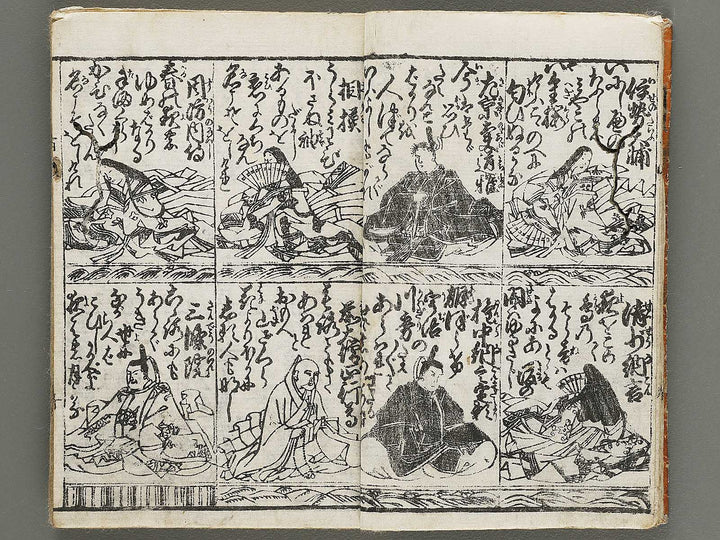 伊勢大輔
いにしへの
ならの
みやこの
八重桜
けふ九重に
匂ひぬるかな
清少納言
夜をこめて
鳥のそらねは
はかるとも
よにあふ坂の
関はゆるさじ
左京大夫道雅
今はたゞ
おもひ
たえなむ
とばかりを
人づてならで
いふよしもがな
権中納言定頼
朝ぼらけ
宇治の
川ぎり
たえ〴〵に
あらはれわたる
相模
うらみわび
ほさぬ袖だに
あるものを
恋にくちなん
名こそをしけれ
前大僧正行尊
もろともに
あはれと
おもへ
山ざくら
花より外に
しる人もなし
周防内侍
春の夜の
ゆめばかり
なる
手枕に
かひなく
たゝん
名こそをしけれ
三條院
心にも
あらで
うき世に
ながらへば
こひしかるべき
夜半の月かな